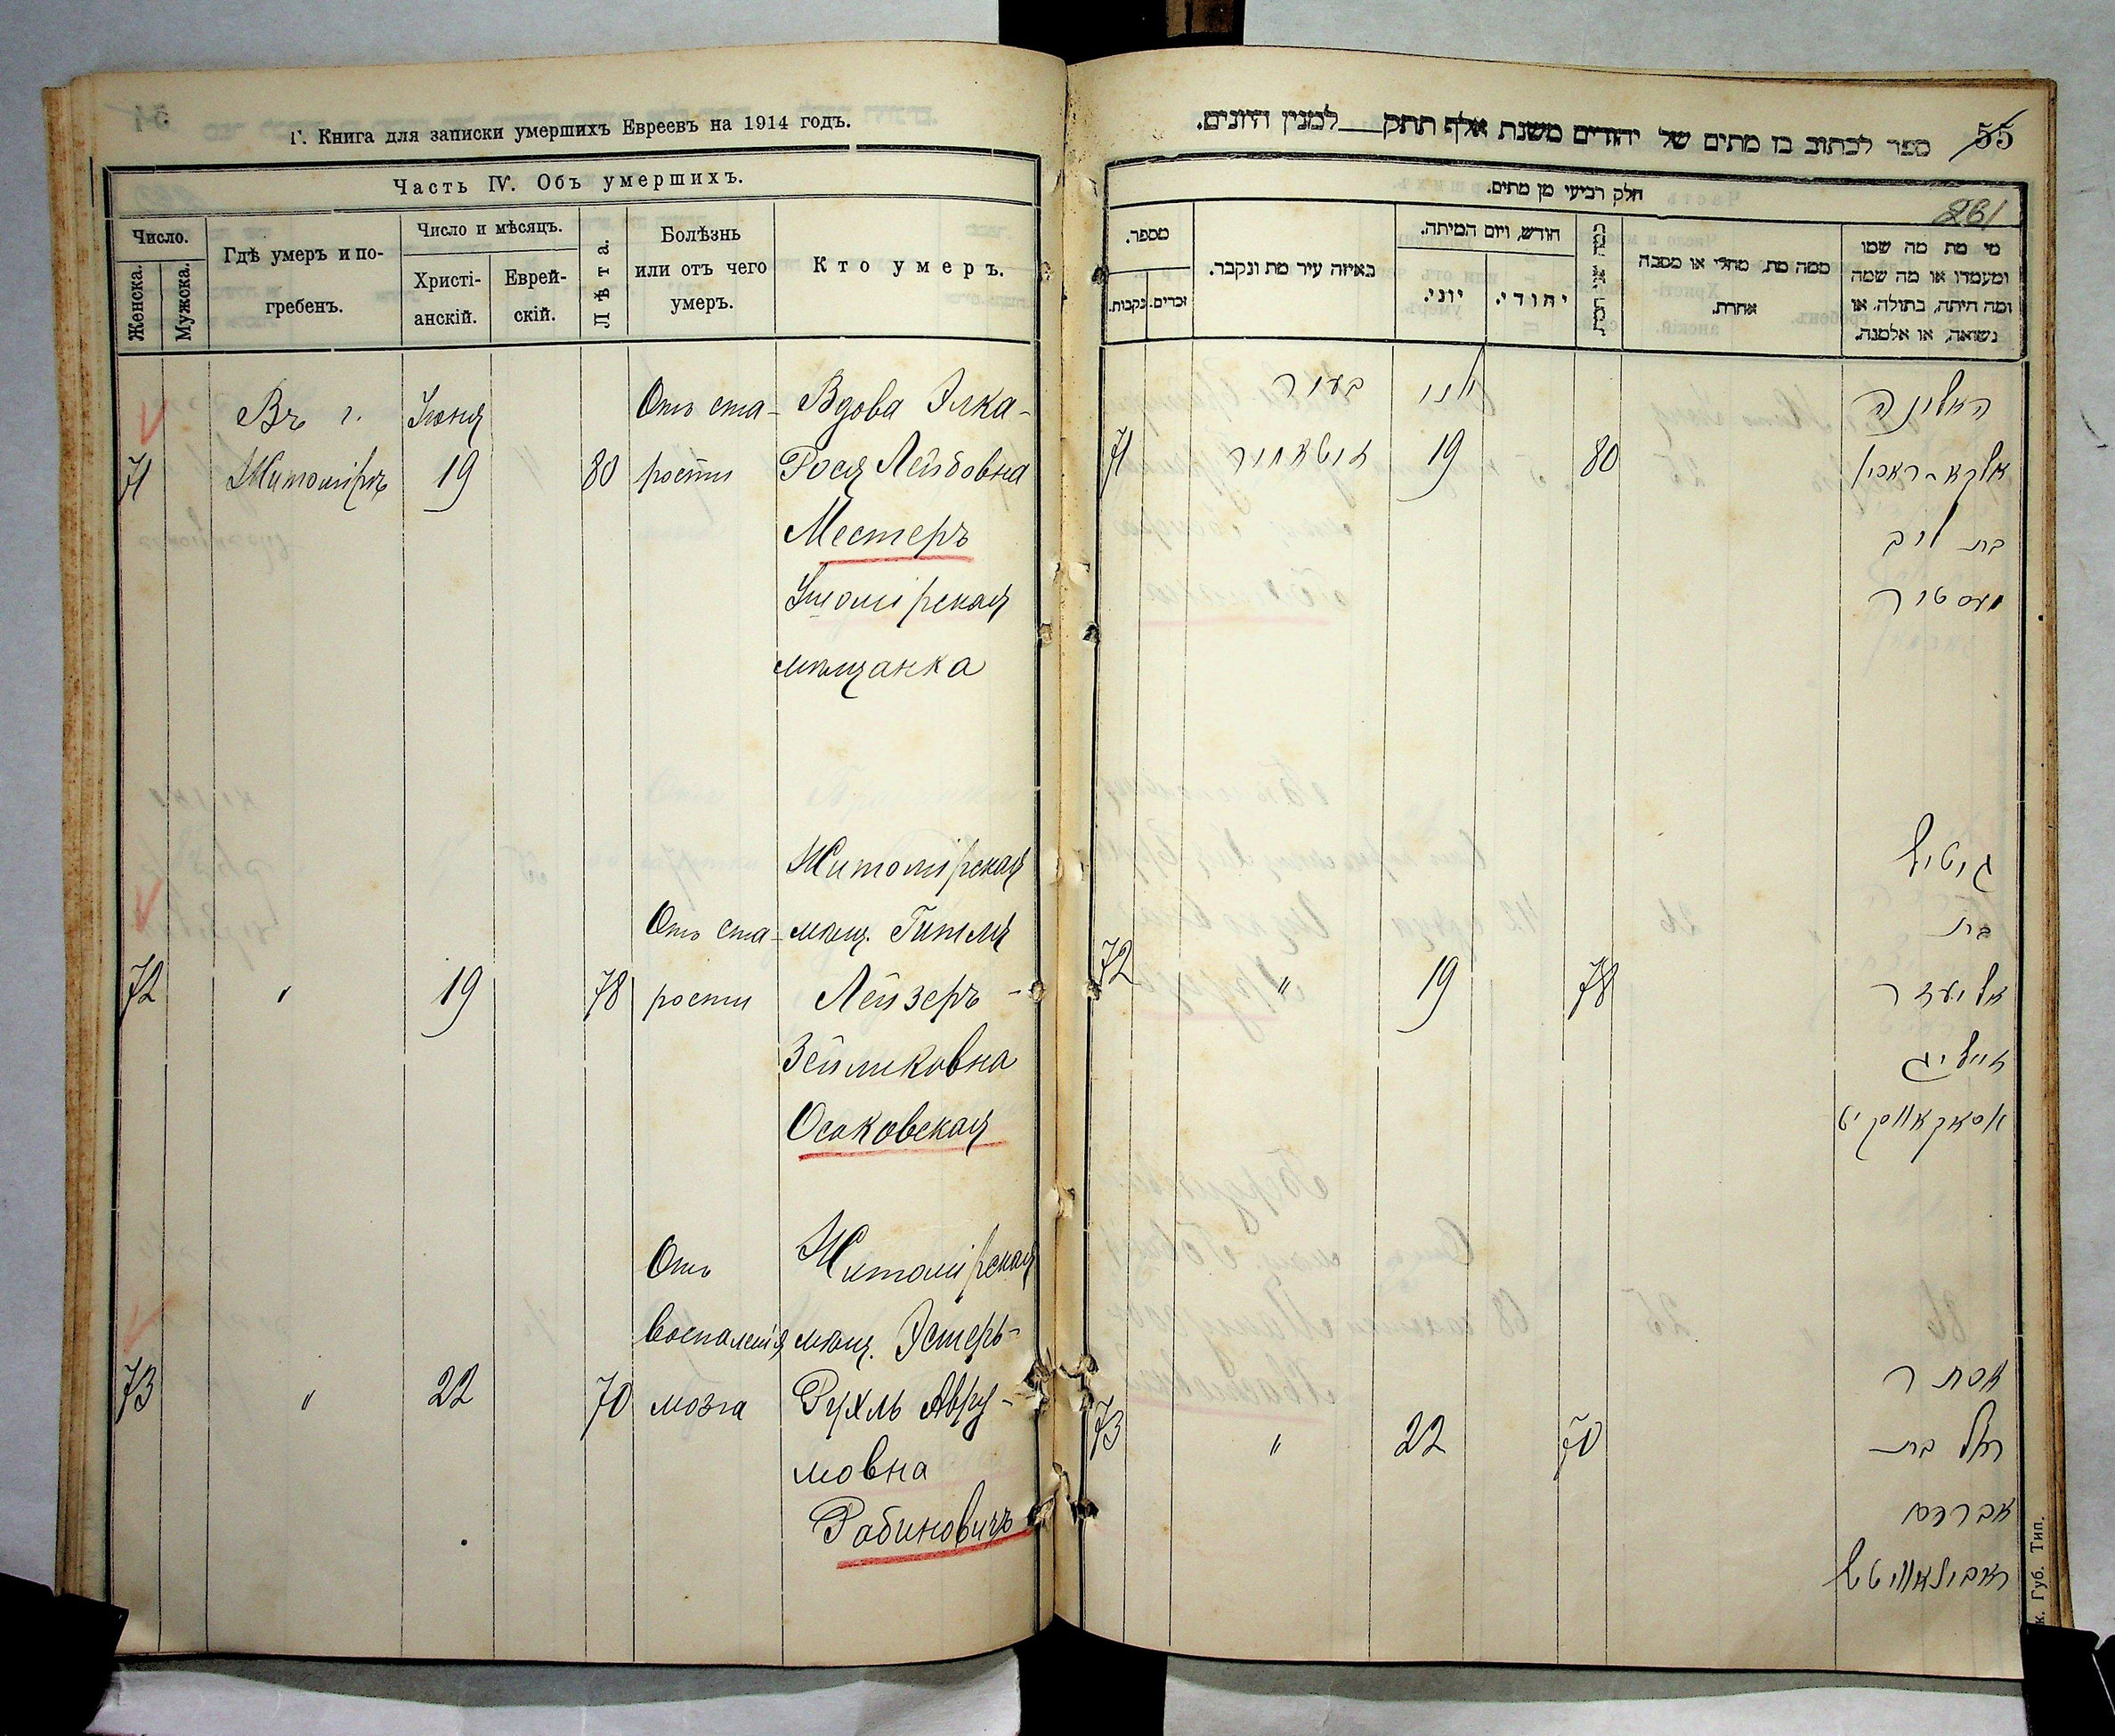 Г. Книга для записки умершихъ Евреевъ на 1914 годъ.
Часть IV. Объ умершихъ.
Число.
Женска.
Мужска.
Гдѣ умеръ и по-
гребенъ.
Число и мѣсяцъ.
Христі-
анскій.
Еврей-
скій.
Лѣта.
Болѣзнь
или отъ чего
умеръ.
Кто умеръ.
Въ г. Іюня Отъ ста- Вдова Элка-
71 Житомірѣ 19 80 рости Рося Лейбовна
Местеръ
Ушомірская
мѣщанка
Житомірская
Отъ ста- мѣщ. Гитля
72 " 19 78 рости Лейзеръ-
Зейликовна
Осаковская
Отъ Житомірская
воспаленія мѣщ. Эстеръ-
73 " 22 70 мозга Рухль Авру-
мовна
Рабиновичъ
55
ספר לכתוב בו מתים של יהודים משנת אלף תתק למנין היונים.
חלק רביעי מן מתים.
261
מספר.
נקבות.
זכרים.
באיזה עיר מת ונקבר.
חודש, ויום המיתה.
יוני.
יהודי.
ממה מת, מחלי או מסבה
אחרת.
מי מת מה שמו
ומעמדו או מה שמה
ומה היתה, בתולה, או
נשואה, או אלמנה.
בעיר יוני האלמנה
71 זיטאמיר 19 80
בת ליב
מעסטער
גיטיל
בת
72 " 19 78 אליעזר
זייליג
אסאקאווסקי
אסתר
73 " 22 70 רחל בת
אברהם
ראבינאוויטש
к. Губ. Тип.